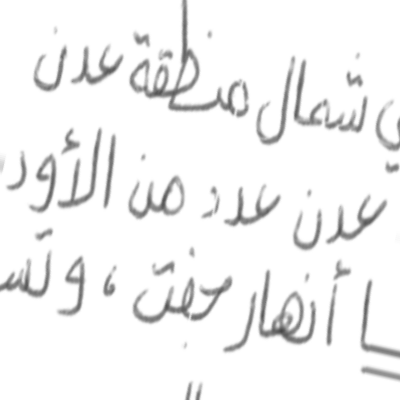 ي شمال منطقة عدن
عدن عدد من الأود
ا أنهار جفت، وتس